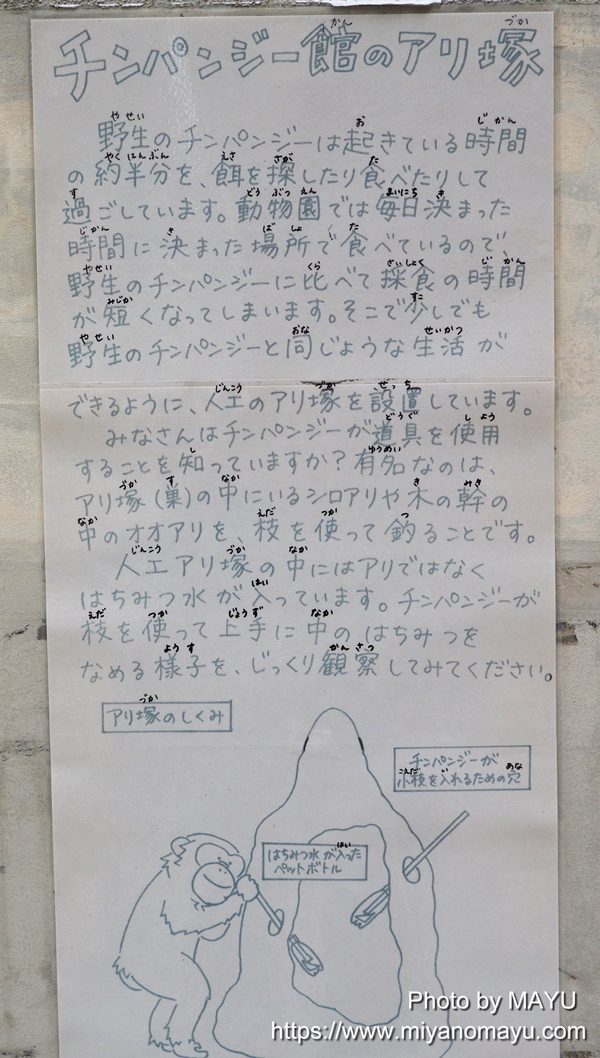 チンパンジー館のアリ塚
野生のチンパンジーは起きている時間
の約半分を、餌を探したり食べたりして
過ごしています。動物園では毎日決まった
時間に決まった場所で食べているので、
野生のチンパンジーに比べて採食の時間
が短くなってしまいます。そこで少しでも
野生のチンパンジーと同じような生活が
できるように、人工のアリ塚を設置しています。
みなさんはチンパンジーが道具を使用
することを知っていますか？有名なのは、
アリ塚(巣)の中にいるシロアリや木の幹の
中のオオアリを、枝を使って釣ることです。
人工アリ塚の中にはアリではなく
はちみつ水が入っています。チンパンジーが
枝を使って上手に中のはちみつを
なめる様子を、じっくり観察してみてください。
アリ塚のしくみ
チンパンジーが
小枝を入れるための穴
はちみつ水が入った
ペットボトル
Photo by MAYU
https://www.miyanomayu.com